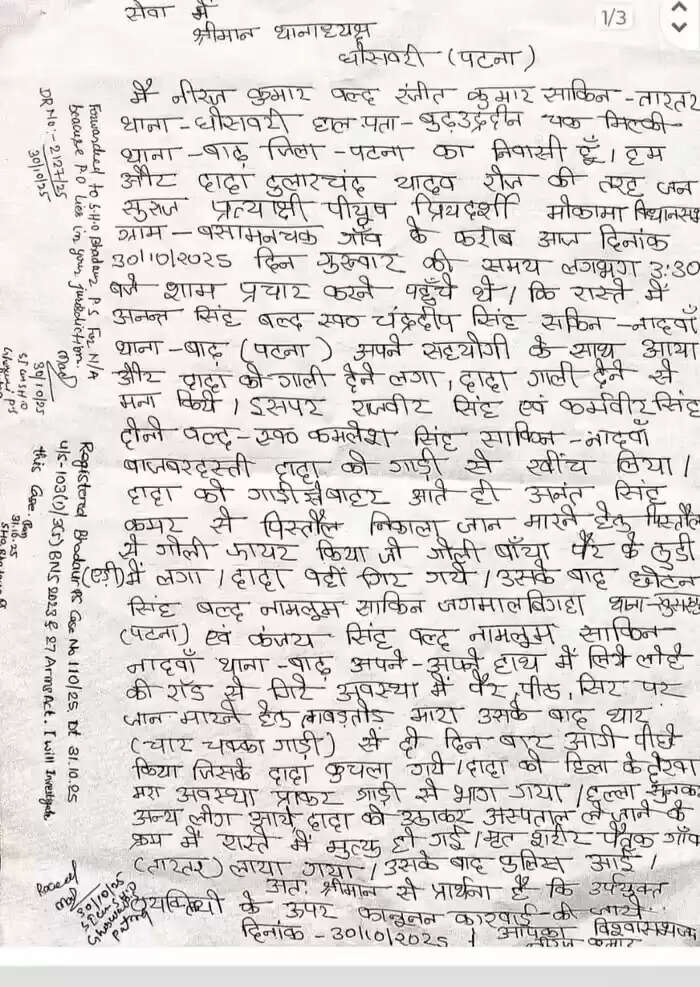 1/3
सेवा में
श्रीमान थानाध्यक्ष
घोसवरी (पटना)
मैं नीरज कुमार वल्द रंजीत कुमार साकिन - तारतर
थाना - घोसवरी हाल पता - बुढ़उद्रदीन चक मिल्की
थाना - बाढ़ जिला - पटना का निवासी हूँ। हम
और दादा दुलारचंद यादव रोज की तरह जन
सुराज प्रत्याक्षी पीयूष प्रियदर्शी मोकामा विधानसभा
ग्राम - बसामनचक गाँव के करीब आज दिनांक
30/10/2025 दिन गुरुवार की समय लगभग 3:30
बजे शाम प्रचार करने पहुँचे थे। कि रास्ते में
अनन्त सिंह वल्द स्व० चंद्रदीप सिंह सकिन - नादवाँ
थाना - बाढ़ (पटना) अपने सहयोगी के साथ आया
और दादा को गाली देने लगा, दादा गाली देने से
मना किये। इसपर राजवीर सिंह एवं कर्मवीर सिंह
दोनो वल्द - स्व० कमलेश सिंह साकिन - नादवाँ
बाजबरदस्ती दादा को गाड़ी से खींच लिया।
दादा को गाड़ी से बाहर आते ही अनंत सिंह
कमर से पिस्तौल निकाला जान मारने हेतु पिस्तौल
से गोली फायर किया जो गोली बाँया पैर के
(एड़ी) में लगा। दादा वहीं गिर गये। उसके बाद छोटन
सिंह वल्द नामलूम साकिन जगमालबिगहा थाना -
(पटना) एवं कंजय सिंह वल्द नामलूम साकिन
नादवाँ थाना - बाढ़ अपने - अपने हाथ में लिये लोहे
की रॉड से गिरे अवस्था में पैर, पीठ, सिर पर
जान मारने हेतु ताबड़तोड़ मारा उसके बाद थार
(चार चक्का गाड़ी) से दो तीन बार आगे पीछे
किया जिसके दादा कुचला गये। दादा को हिला के देखा
मरा अवस्था प्राकर गाड़ी से भाग गया। हल्ला सुनकर
अन्य लोग आये दादा को उठाकर अस्पताल ले जाने के
क्रम में रास्ते में मृत्यु हो गई। मृत शरीर पैतृक गाँव
(तारतर) लाया गया। उसके बाद पुलिस आई।
अतः श्रीमान से प्रार्थना है कि उर्पयुक्त
व्यक्तियों के ऊपर कानूनन कारवाई की जाये
दिनांक - 30/10/2025 । आपका विश्वासभाजन
नीरज कुमार
DR No:- 2127/25
30/10/25
Forwarded to S.H.O Bhadaur P.S For N/A
because P.O lies in your jurisdiction.
30/10/25
SI cum SHO
Ghoswari PS
Registered Bhadaur PS Case No 110/25, Dt 31.10.25
u/s-103(1)/3(5) BNS 2023 & 27 Arms Act. I will Investigate
this Case.
31.10.25
30/10/25
SI cum SHO
Ghoswari PS
Patna